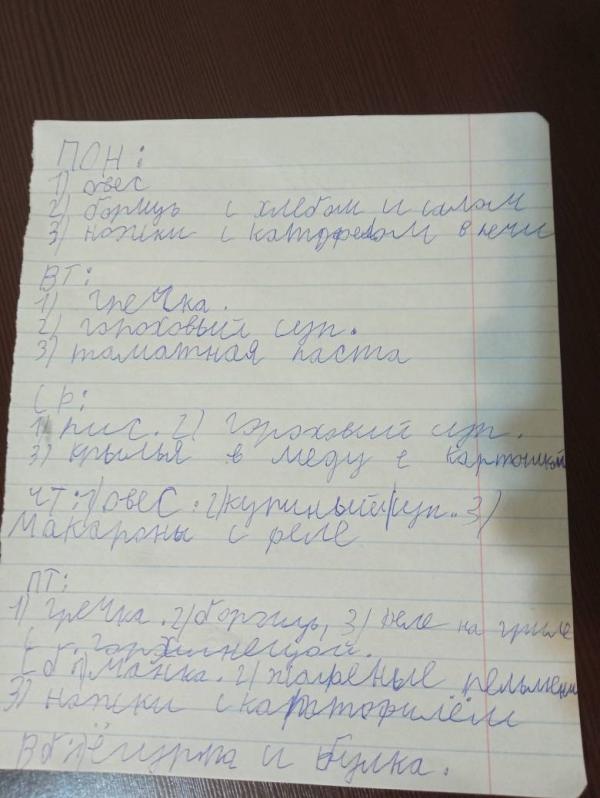 ПОН:
1) овес
2) борщь с хлебом и салом
3) ножки с катофелом в печи
ВТ:
1) гречка.
2) гороховый суп.
3) таматная паста
СР:
1) рис. 2) гороховый суп.
3) крылья в меду с картошкой
ЧТ: 1) овес. 2) купиный суп. 3)
макароны с феле
ПТ:
1) гречка. 2) борщь, 3) феле на гриле
с
Сб. 1) манка. 2) жареные пельмени
3) ножки с картофилём
Вс: и булка.